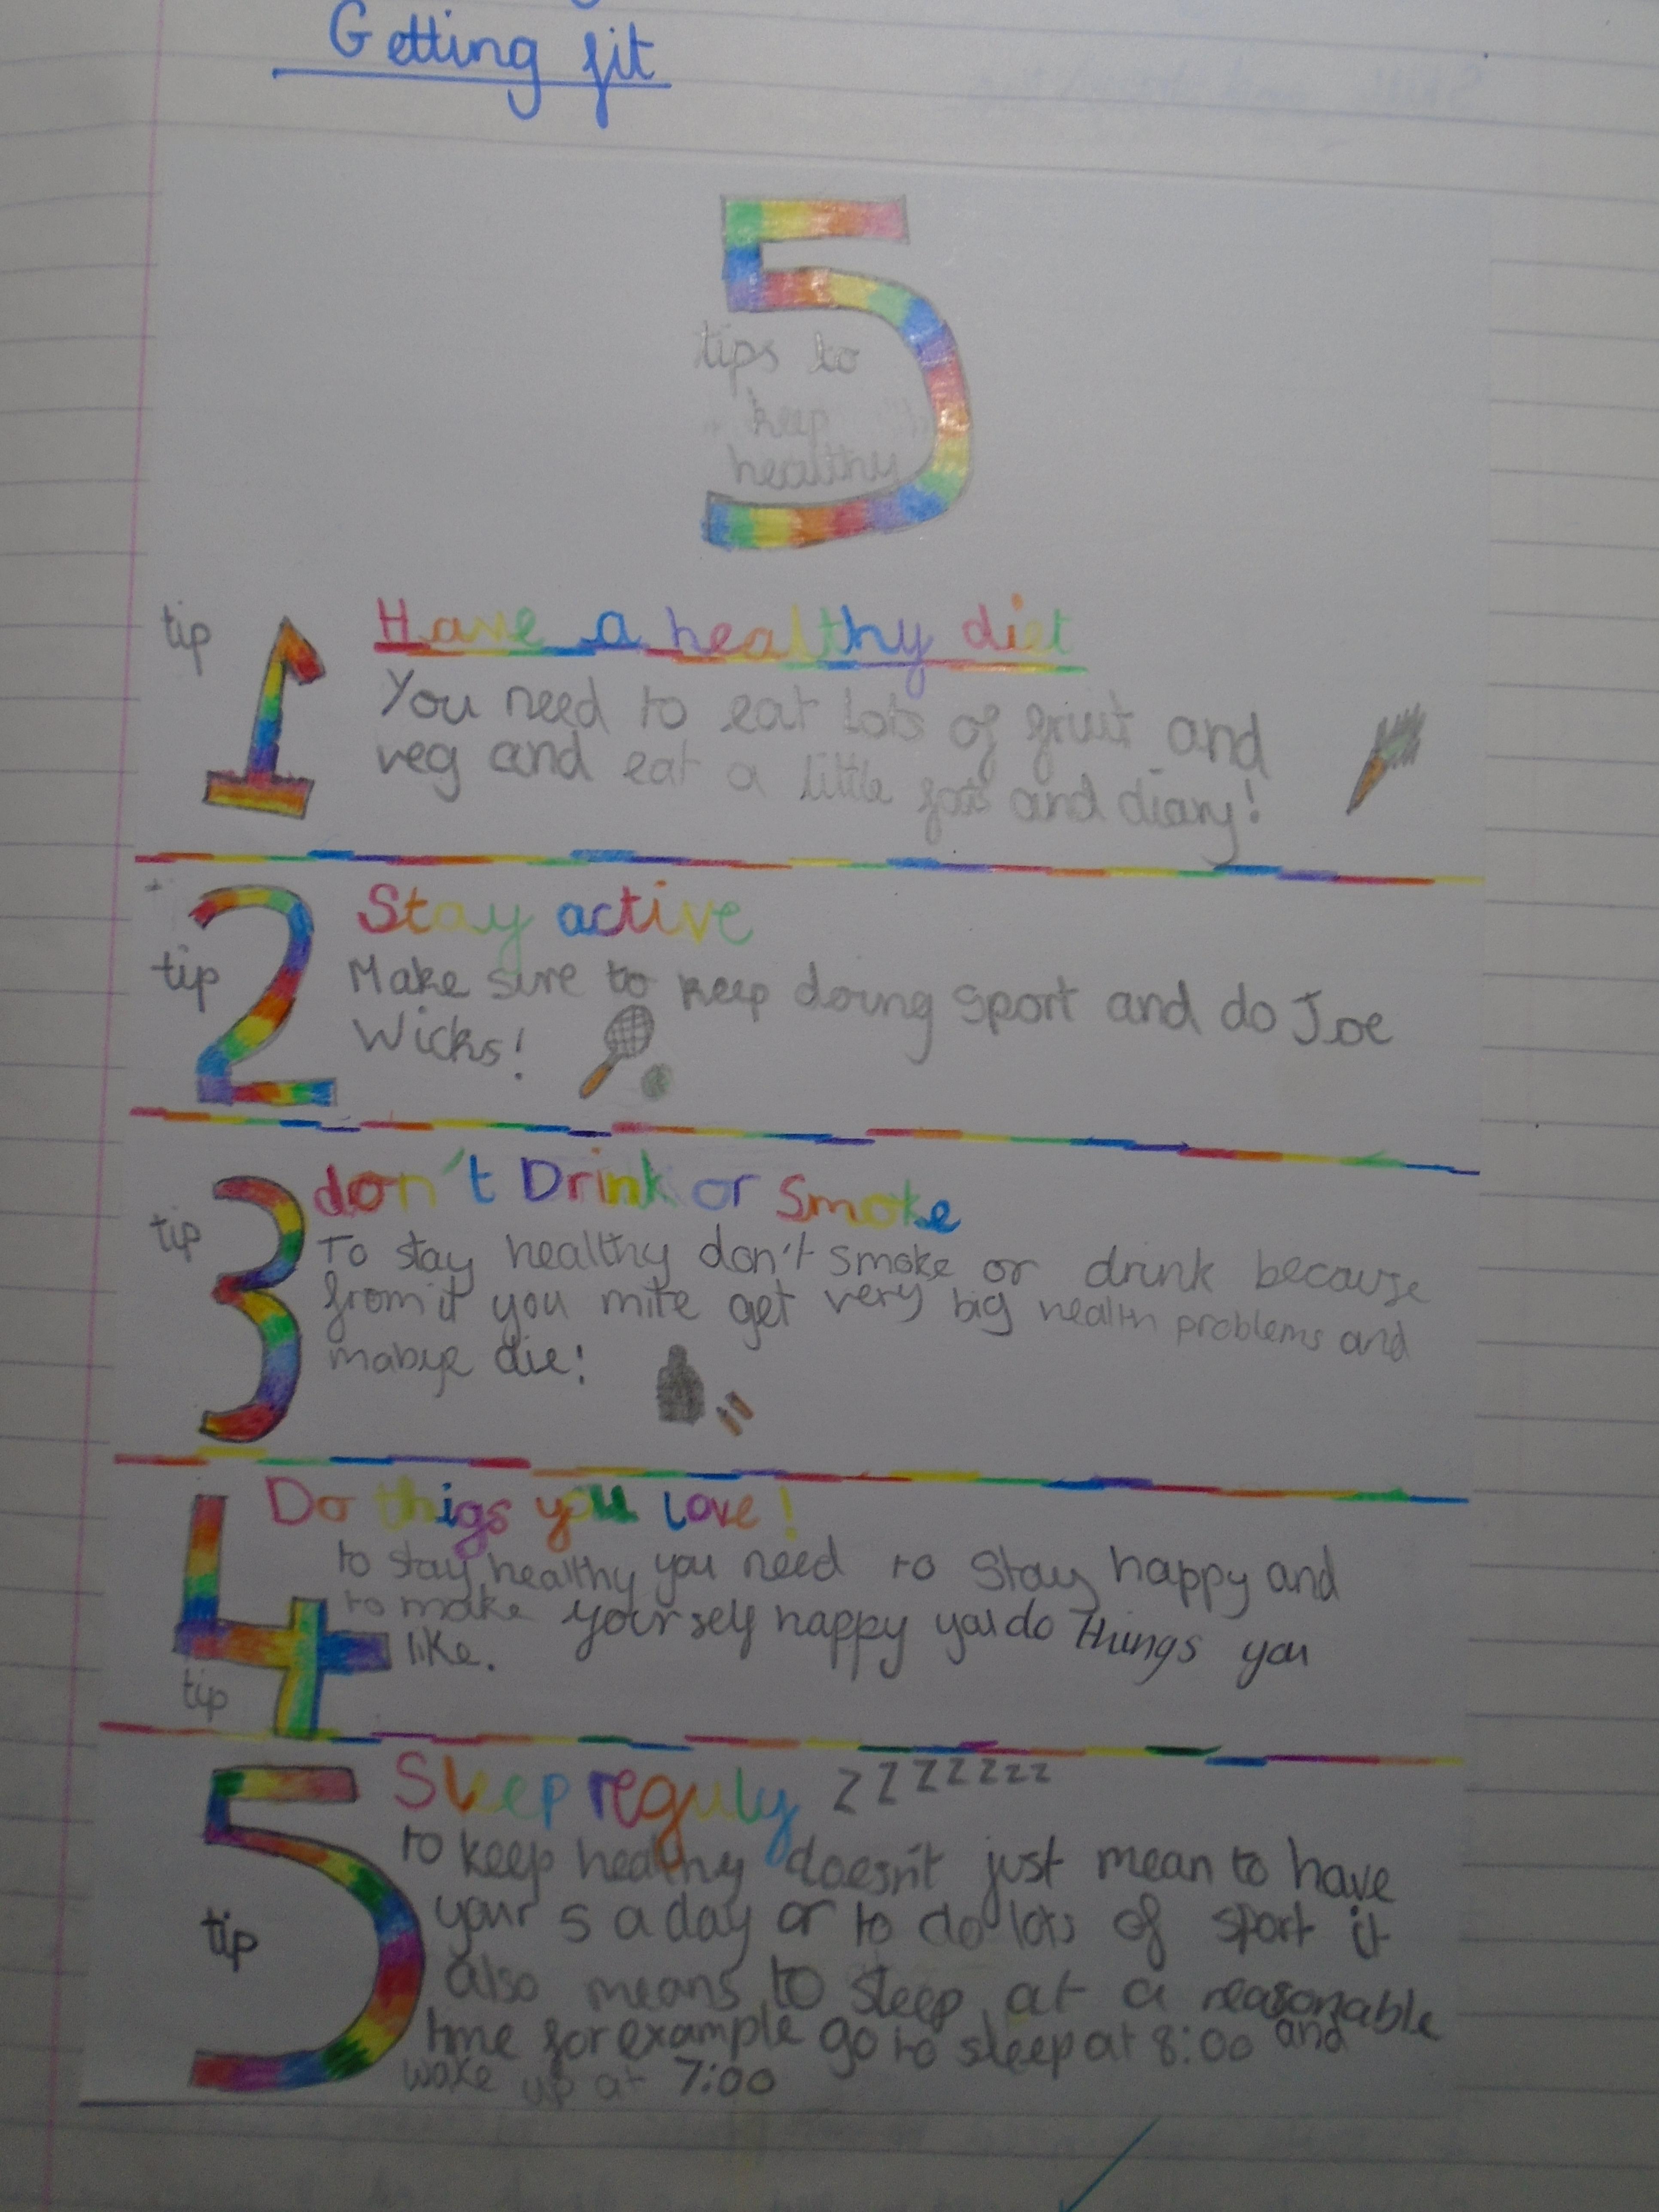 Getting fit
5
tips to
keep
healthy
tip 1 Have a healthy diet
You need to eat lots of fruit and
veg and eat a little fats and diary!
tip 2 Stay active
Make sure to keep doing sport and do Joe
Wicks!
tip 3 don't Drink or Smoke
To stay healthy don't smoke or drink because
from it you mite get very big health problems and
mabye die!
tip 4 Do thigs you love!
to stay healthy you need to stay happy and
to make yourself happy you do things you
like.
tip 5 Sleep reguly zzzzzzz
to keep healthy doesn't just mean to have
your 5 a day or to do lots of sport it
also means to sleep at a reasonable
time for example go to sleep at 8:00 and
wake up at 7:00